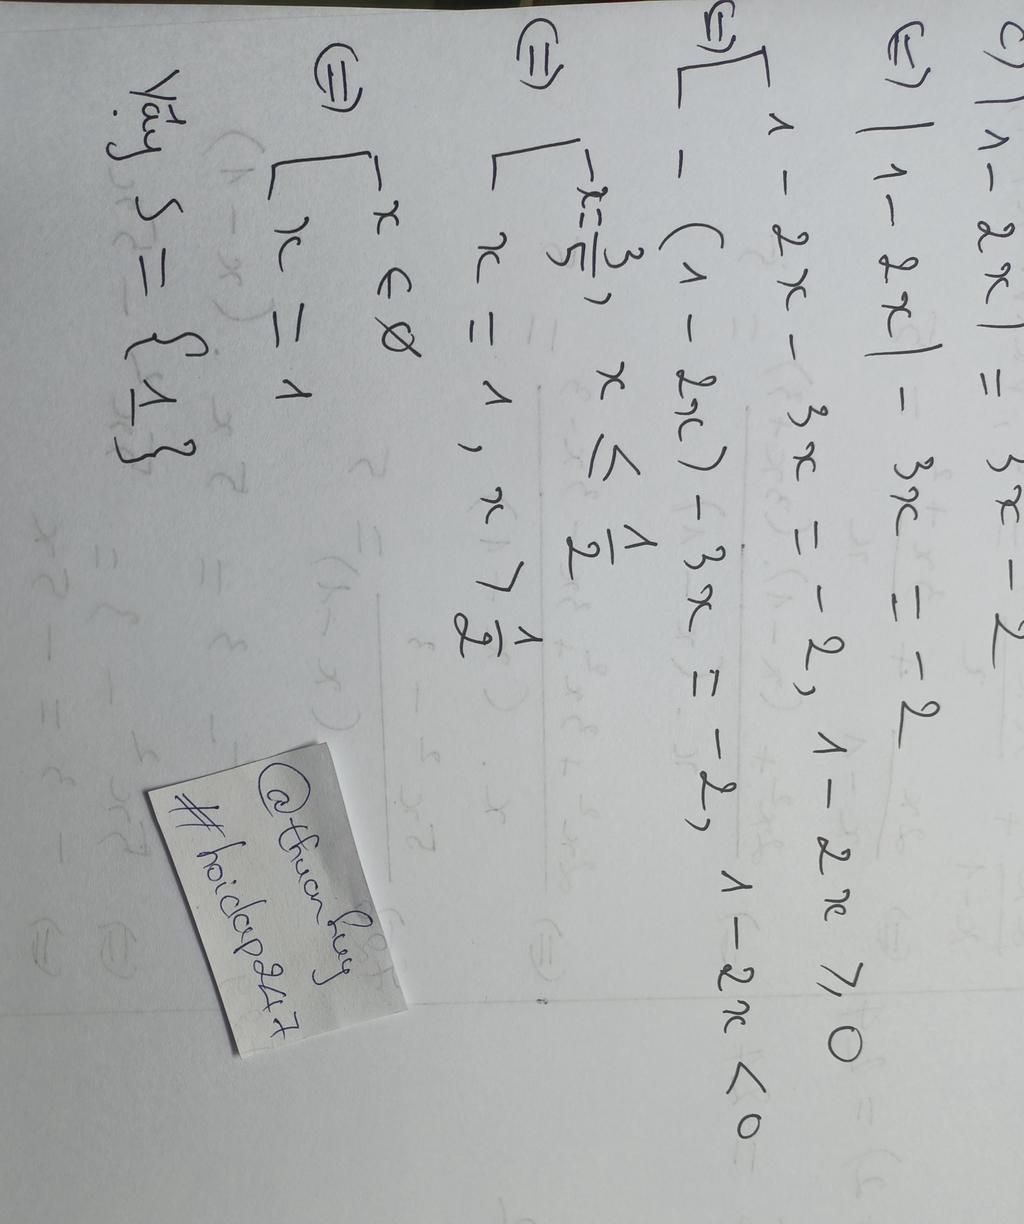 c) |1 - 2x| = 3x - 2
(=) |1 - 2x| - 3x = -2
(=) [ 1 - 2x - 3x = -2, 1 - 2x ⩾ 0
- (1 - 2x) - 3x = -2, 1 - 2x < 0
(=) [ x = 3/5, x ≤ 1/2
x = 1, x > 1/2
(=) [ x ∈ ∅
x = 1
Vậy S = {1}
@thuanhuy
#hoidap247